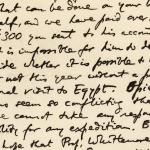 that can be done on your
self, and we have paid over
£300 you sent to his account
is impossible for him to de
cide whether it is possible to
not this year without a
nal visit to Egypt.
seem so conflicting that
cannot take any respon
ility for any expedition.
hope that Prof. Whittemore